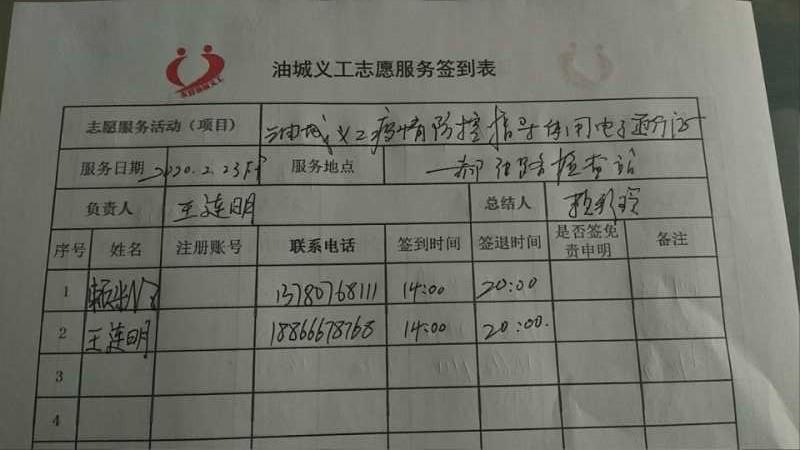 油城义工志愿服务签到表
志愿服务活动（项目） 油城义工疫情防控指导使用电子通行证
服务日期 2020.2.23 服务地点 郝纯路检查站
负责人 王连明 总结人
序号 姓名 注册账号 联系电话 签到时间 签退时间 是否签免责申明 备注
1 13780768111 14:00 20:00
2 王连明 18866678768 14:00 20:00.
3
4